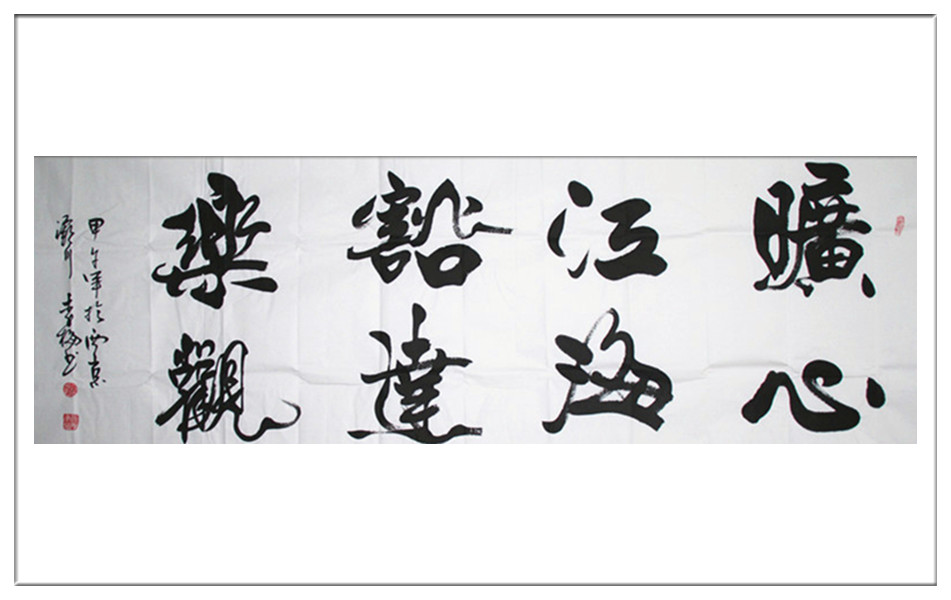 曠心
江海
豁達
樂觀
甲午年於西京